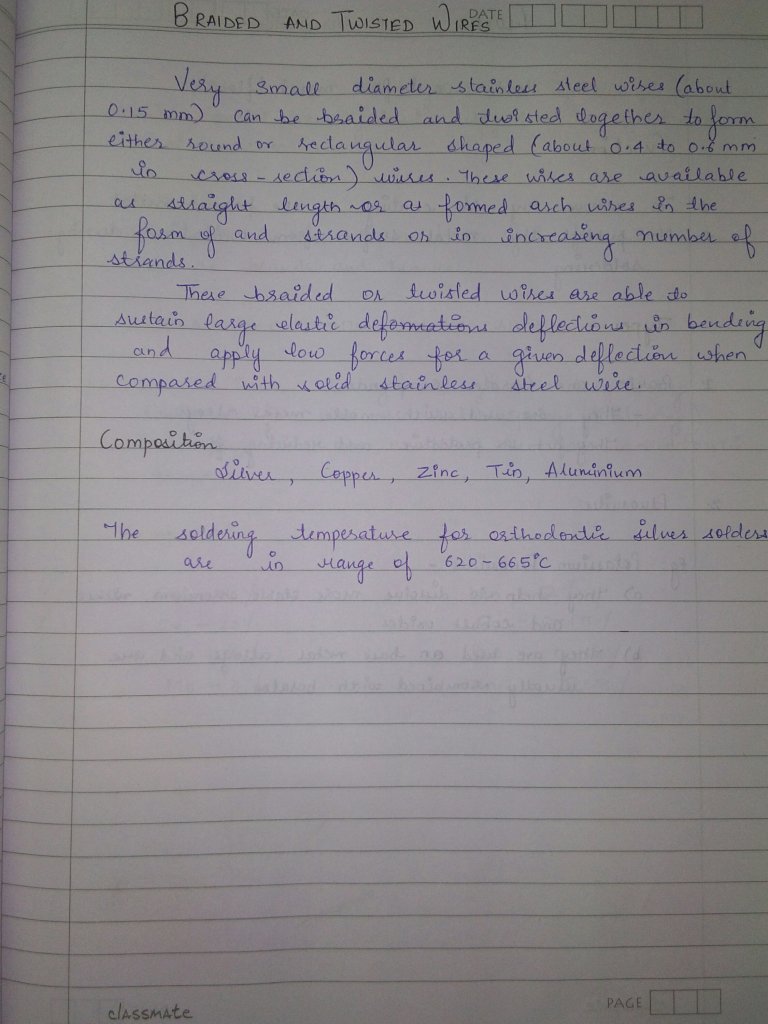 BRAIDED AND TWISTED WIRES DATE
Very small diameter stainless steel wires (about
0.15 mm) can be braided and twisted together to form
either round or rectangular shaped (about 0.4 to 0.6 mm
in cross-section) wires. These wires are available
as straight length or as formed arch wires in the
form of and strands or in increasing number of
strands.
These braided or twisted wires are able to
sustain large elastic deformations deflections in bending
and apply low forces for a given deflection when
compared with solid stainless steel wire.
Composition
Silver, Copper, Zinc, Tin, Aluminium
The soldering temperature for orthodontic silver solders
are in range of 620-665°C
classmate
PAGE